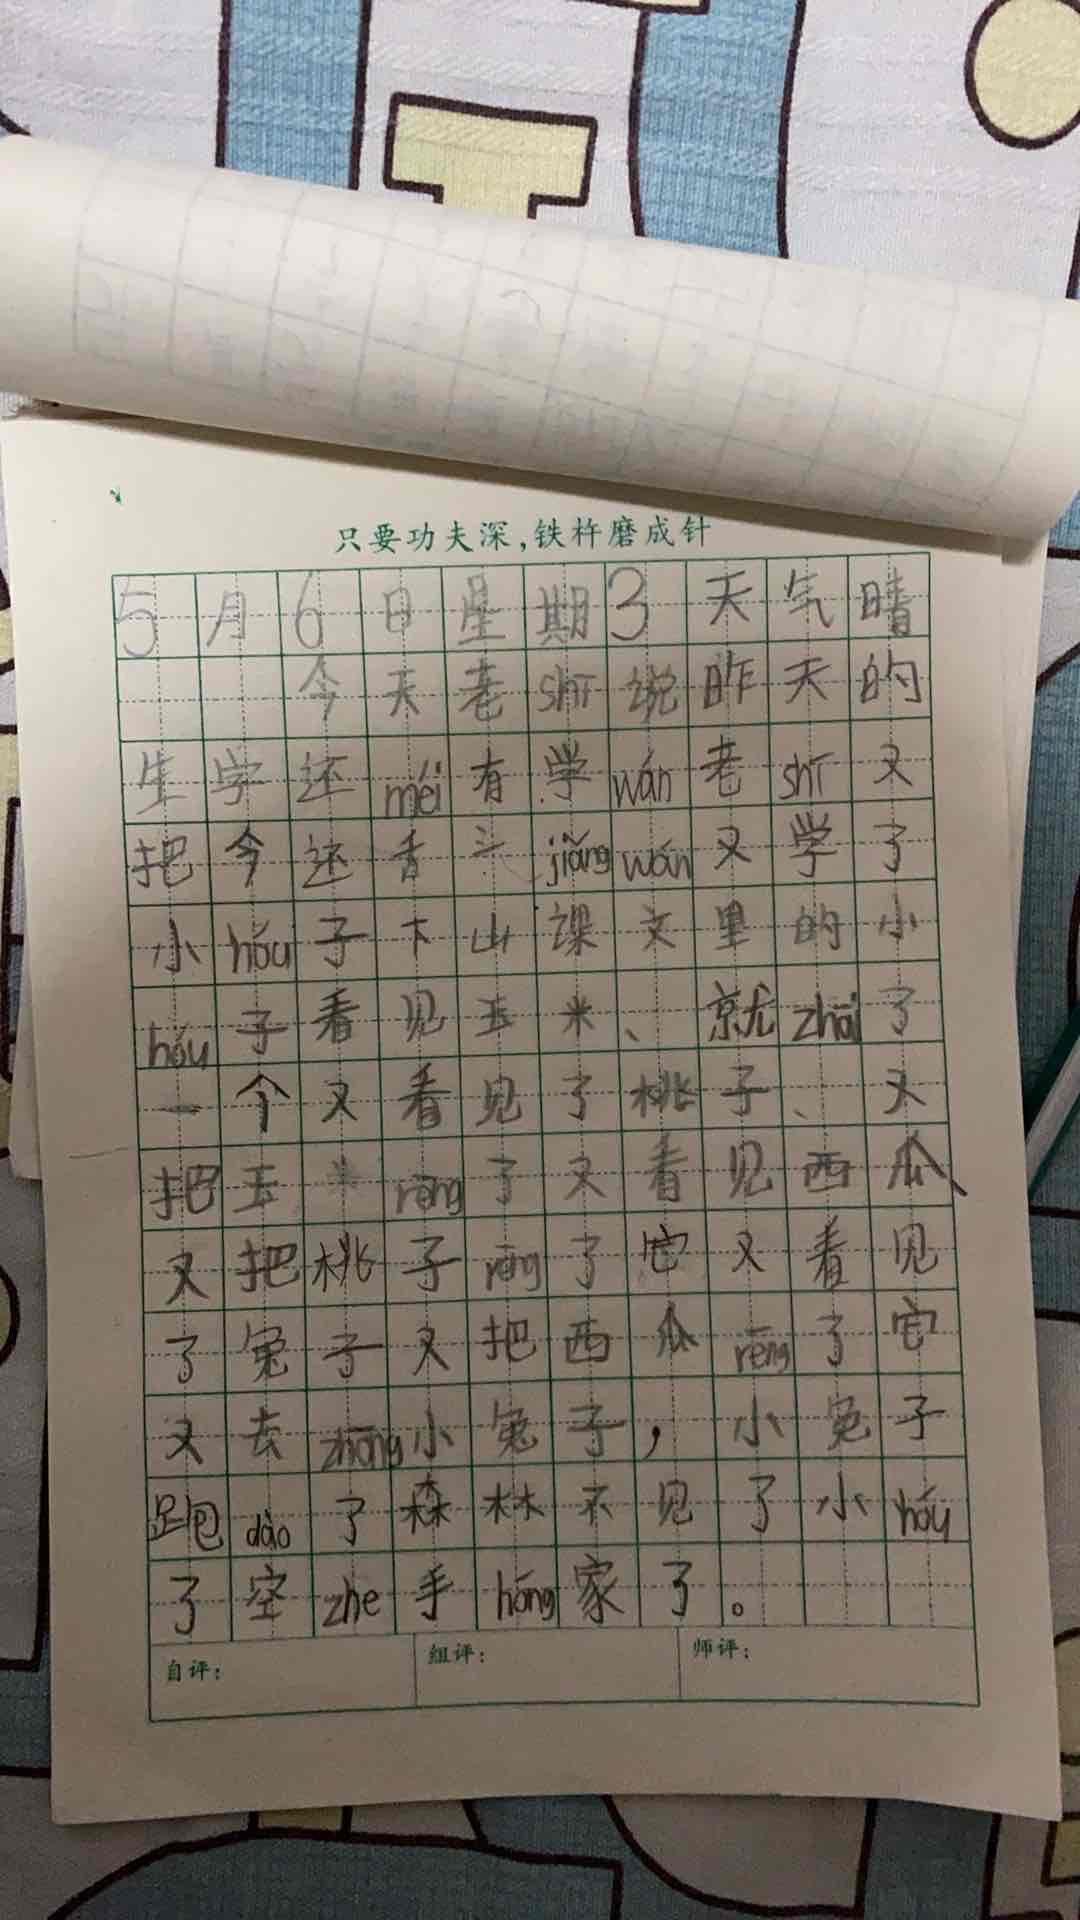 只要功夫深,铁杵磨成针
5月6日星期3天气晴
今天老shī说昨天的
生字还méi有学wán老shī又
把今还香斗jiǎngwán又学了
小hóu子下山课文里的小
hóu子看见玉米、就zhāi了
一个又看见了桃子、又
把玉米rēng了又看见西瓜
又把桃子rēng了它又看见
了兔子又把西瓜rēng了它
又去zhōng小兔子,小兔子
跑dào了森林不见了小hóu
了空zhe手hóng家了。
自评:
组评:
师评: